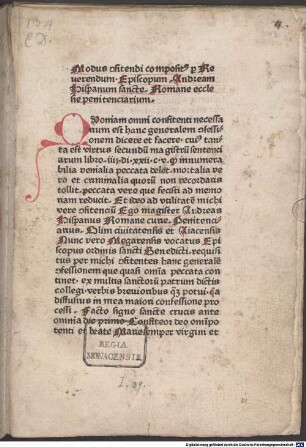 4.
·Modus ɔfitendi compositꝰ ꝑ Re
uerendum·Episcopum·Andream
Hispanum sancte·Romane eccle
sie penitenciarium·
QVoniam omni confitenti necessa
rium est hanc generalem ɔfessi
onem dicere et facere·cuiꝰ tan
ta est virtus secundū magistrū sentenci
arum libro·iiij·di·xxij·c·v· ꝙ innumera
bilia venialia peccata delet·mortalia ve
ro et criminalia quorū non recordaris
tollit·peccata vero que fecisti ad memo
riam reducit·Et ideo ad vtilitatē michi
vere ɔfitenciū Ego magister Andreas
Hispanus Romane curie·Penitenci
arius·Olim ciuitatensis et Aiacensis
Nunc vero Megarensis vocatus Epi
scopus ordinis sancti Benedicti·requisi
tus per michi ɔfitentes hanc generalē
ɔfessionem que quasi omīa peccata con
tinet·ex multis sanctorū patrum dictis
collegi·verbis breuioribus qꝫ potui·qā
diffusius in mea maiori confessione pro
cessi·Facto signo sancte crucis ante
omnia dic primo·Confiteor deo omīpo
tenti et beate Marie semper virgini et
REGIA
MONACENSIS